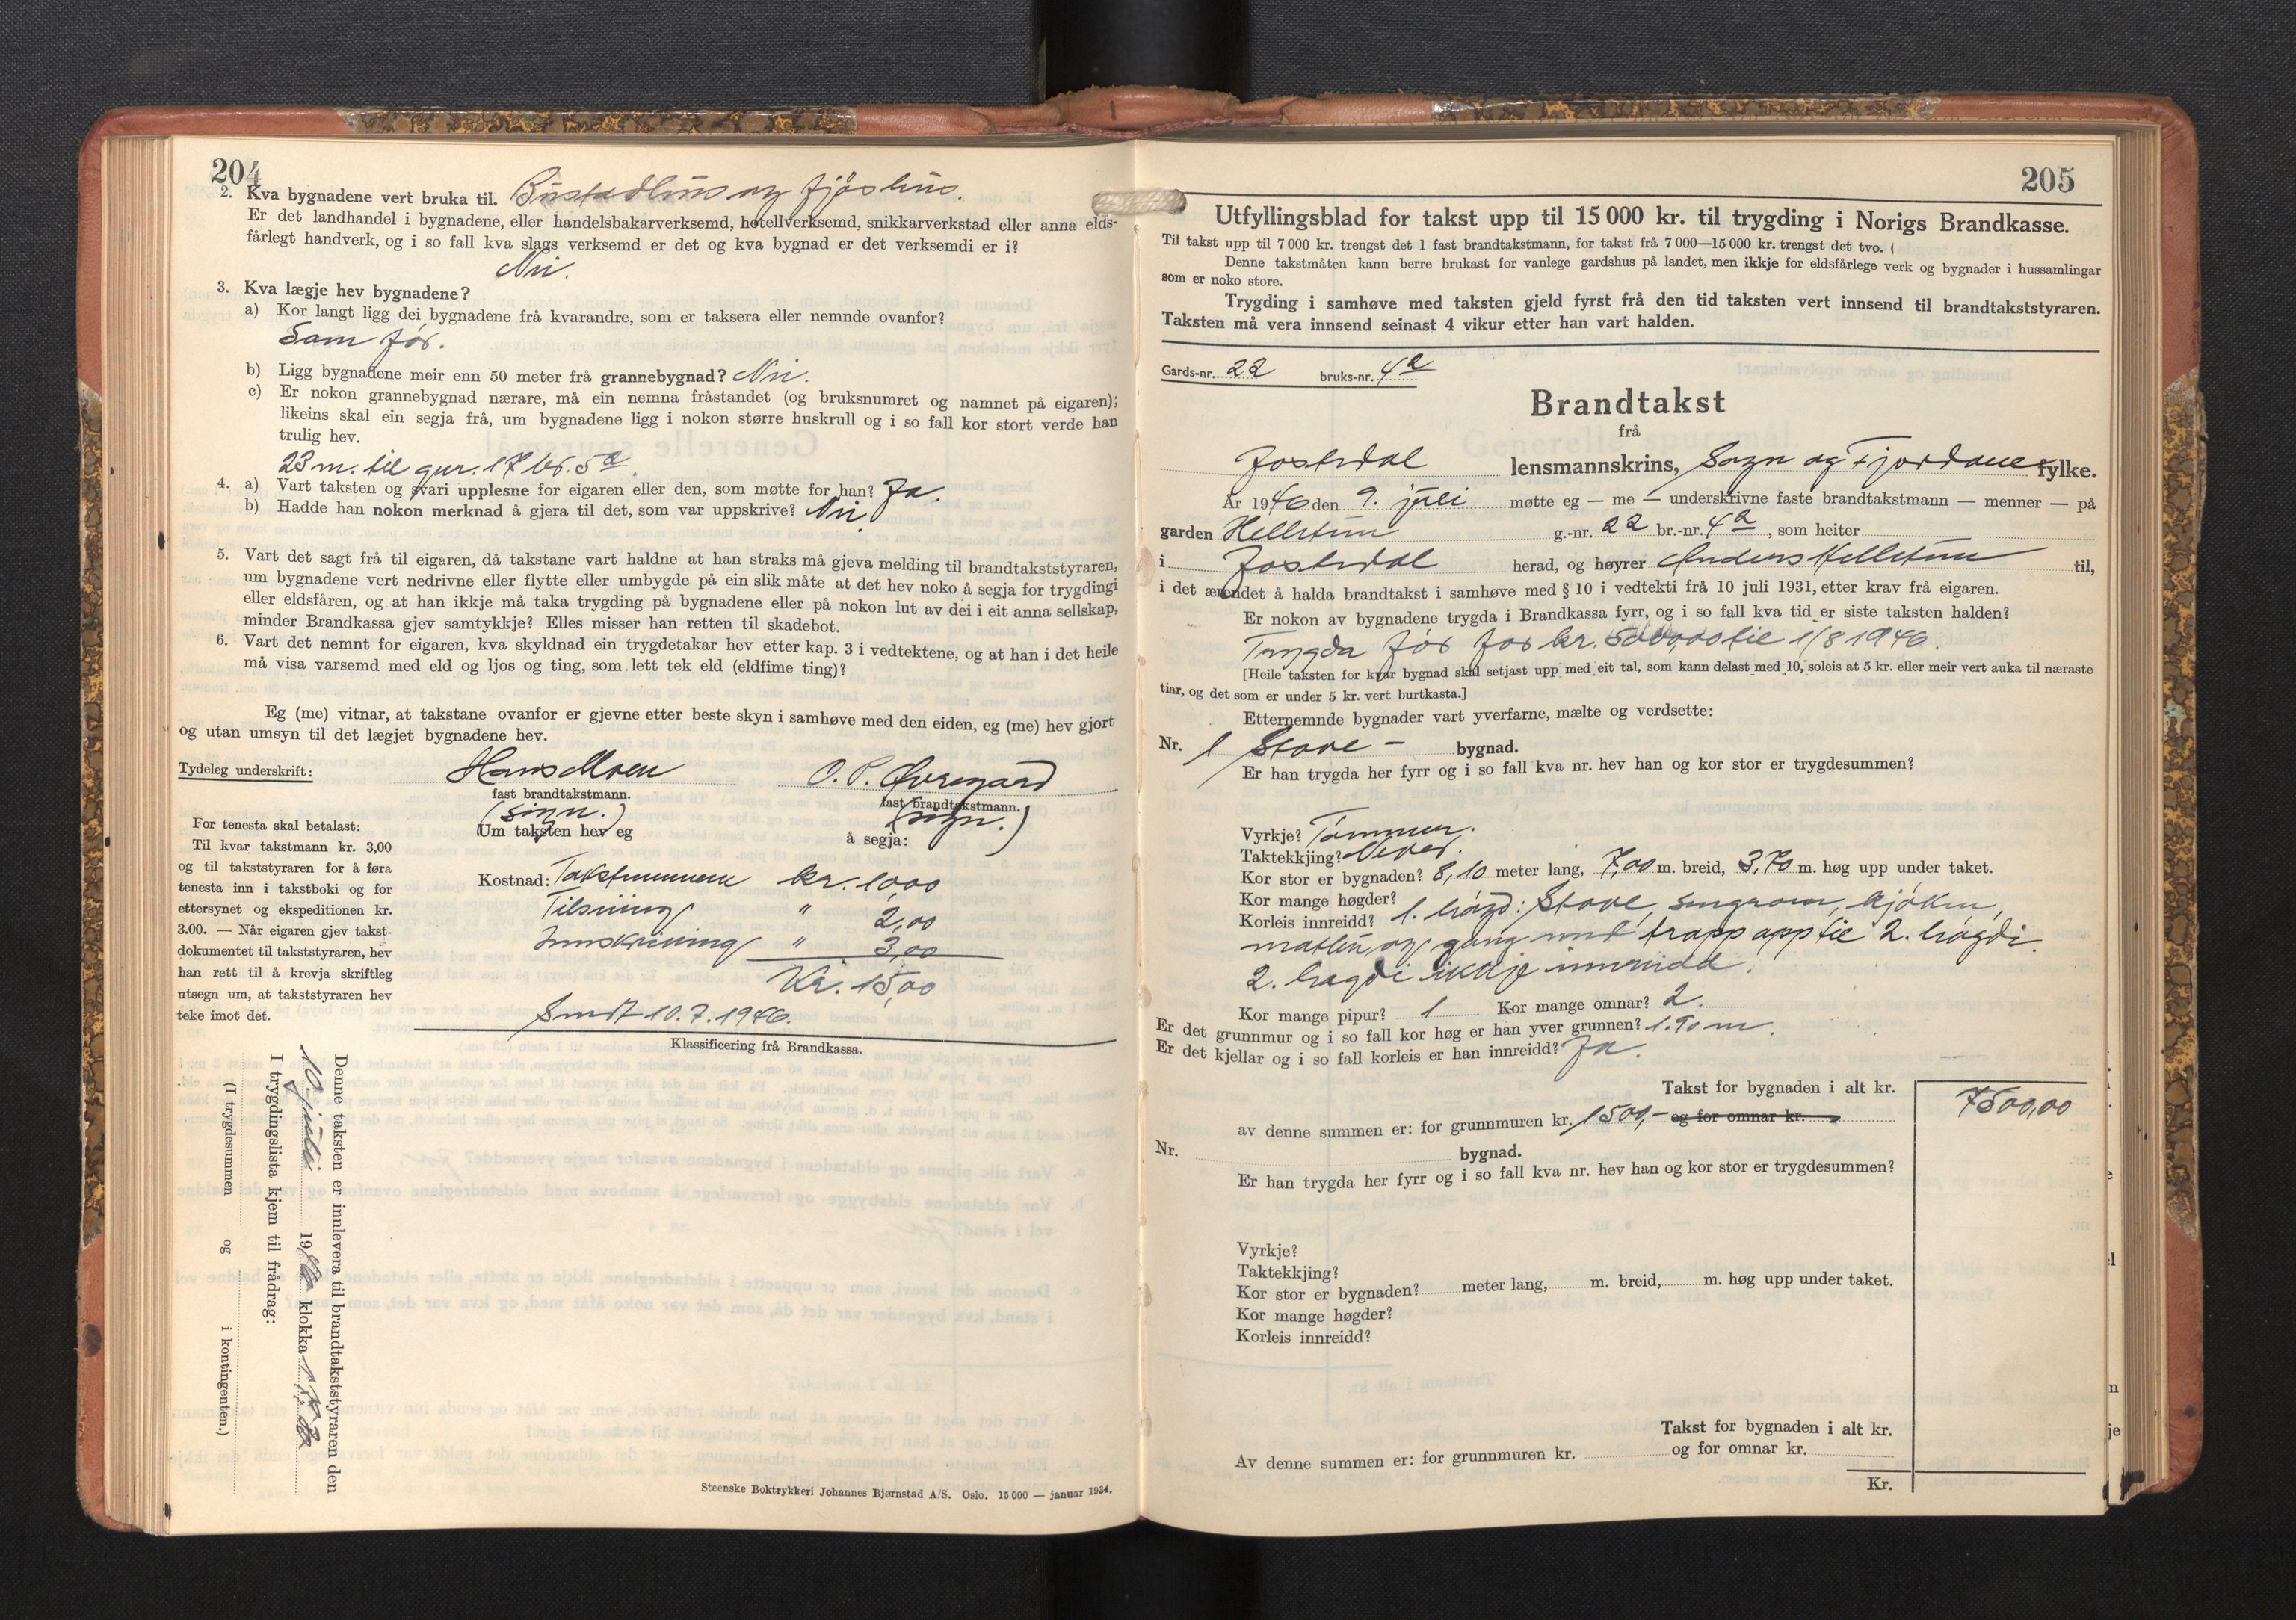 204
2. Kva bygnadene vert bruka til. Bustadhus og fjøshus.
Er det landhandel i bygnadene, eller handelsbakarverksemd, hotellverksemd, snikkarverkstad eller anna elds-
fårlegt handverk, og i so fall kva slags verksemd er det og kva bygnad er det verksemdi er i?
Nei.
3. Kva lægje hev bygnadene?
a) Kor langt ligg dei bygnadene frå kvarandre, som er taksera eller nemnde ovanfor?
Som før.
b) Ligg bygnadene meir enn 50 meter frå grannebygnad? Nei.
c) Er nokon grannebygnad nærare, må ein nemna fråstandet (og bruksnumret og namnet på eigaren);
likeins skal ein segja frå, um bygnadene ligg i nokon større huskrull og i so fall kor stort verde han
trulig hev.
23 m. til gnr. 17 br. 5a
4. a) Vart taksten og svari upplesne for eigaren eller den, som møtte for han? Ja.
b) Hadde han nokon merknad å gjera til det, som var uppskrive? Nei
5. Vart det sagt frå til eigaren, då takstane vart haldne at han straks må gjeva melding til brandtakststyraren,
um bygnadene vert nedrivne eller flytte eller umbygde på ein slik måte at det hev noko å segja for trygdingi
eller eldsfåren, og at han ikkje må taka trygding på bygnadene eller på nokon lut av dei i eit anna sellskap,
minder Brandkassa gjev samtykkje? Elles misser han retten til skadebot.
6. Vart det nemnt for eigaren, kva skyldnad ein trygdetakar hev etter kap. 3 i vedtektene, og at han i det heile
må visa varsemd med eld og ljos og ting, som lett tek eld (eldfime ting)?
Eg (me) vitnar, at takstane ovanfor er gjevne etter beste skyn i samhøve med den eiden, eg (me) hev gjort
og utan umsyn til det lægjet bygnadene hev.
Tydeleg underskrift: Hans Moen O. P. Øvregard
fast brandtakstmann. fast brandtakstmann.
(sign.) (sign.)
Um taksten hev eg å segja:
For tenesta skal betalast:
Til kvar takstmann kr. 3,00
og til takststyraren for å føra
tenesta inn i takstboki og for
ettersynet og ekspeditionen kr.
3.00. — Når eigaren gjev takst-
dokumentet til takststyraren, hev
han rett til å krevja skriftleg
utsegn um, at takststyraren hev
teke imot det.
Kostnad: Takstmennene kr. 10,00
Tilsyning " 2,00
Innskriving " 3,00
Kr. 15,00
Sendt 10.7.1946.
Klassificering frå Brandkassa.
Denne taksten er innlevera til brandtakststyraren den
10. juli 1946 klokka
I trygdingslista kjem til frådrag:
(I trygdesummen og i kontingenten.)
Steenske Boktrykkeri Johannes Bjørnstad A/S. Oslo. 15 000 — januar 1934.
205
Utfyllingsblad for takst upp til 15 000 kr. til trygding i Norigs Brandkasse.
Til takst upp til 7 000 kr. trengst det 1 fast brandtakstmann, for takst frå 7 000—15 000 kr. trengst det tvo.
Denne takstmåten kann berre brukast for vanlege gardshus på landet, men ikkje for eldsfårlege verk og bygnader i hussamlingar
som er noko store.
Trygding i samhøve med taksten gjeld fyrst frå den tid taksten vert innsend til brandtakststyraren.
Taksten må vera innsend seinast 4 vikur etter han vart halden.
Gards-nr. 22 bruks-nr. 4a
Brandtakst
frå
Jostedal lensmannskrins, Sogn og Fjordane fylke.
År 1946 den 9. juli møtte eg — me — underskrivne faste brandtakstmann — menner — på
garden Helletun g.-nr. 22 br.-nr. 4a, som heiter
i Jostedal herad, og høyrer Anders Helletun til,
i det ærendet å halda brandtakst i samhøve med § 10 i vedtekti frå 10 juli 1931, etter krav frå eigaren.
Er nokon av bygnadene trygda i Brandkassa fyrr, og i so fall kva tid er siste taksten halden?
Trygda før for kr. 5000,00 til 1/8 1946.
[Heile taksten for kvar bygnad skal setjast upp med eit tal, som kann delast med 10, soleis at 5 kr. eller meir vert auka til næraste
tiar, og det som er under 5 kr. vert burtkasta.]
Etternemnde bygnader vart yverfarne, mælte og verdsette:
Nr. 1 Stove - bygnad.
Er han trygda her fyrr og i so fall kva nr. hev han og kor stor er trygdesummen?
Vyrkje? Tømmer.
Taktekkjing? Never.
Kor stor er bygnaden? 8,10 meter lang, 7,00 m. breid, 3,70 m. høg upp under taket.
Kor mange høgder?
Korleis innreidd? 1. høgd: Stove, sengrom, kjøken,
matbu, og gang med trapp opp til 2. høgdi.
2. høgdi ikkje innreidd.
Kor mange pipur? 1 Kor mange omnar? 2.
Er det grunnmur og i so fall kor høg er han yver grunnen? 1.90 m.
Er det kjellar og i so fall korleis er han innreidd? Ja.
Takst for bygnaden i alt kr. 7500,00
av denne summen er: for grunnmuren kr. 1500,- og for omnar kr.
Nr. bygnad.
Er han trygda her fyrr og i so fall kva nr. hev han og kor stor er trygdesummen?
Vyrkje?
Taktekkjing?
Kor stor er bygnaden? meter lang, m. breid, m. høg upp under taket.
Kor mange høgder?
Korleis innreidd?
Takst for bygnaden i alt kr.
Av denne summen er: for grunnmuren kr. og for omnar kr.
Kr.